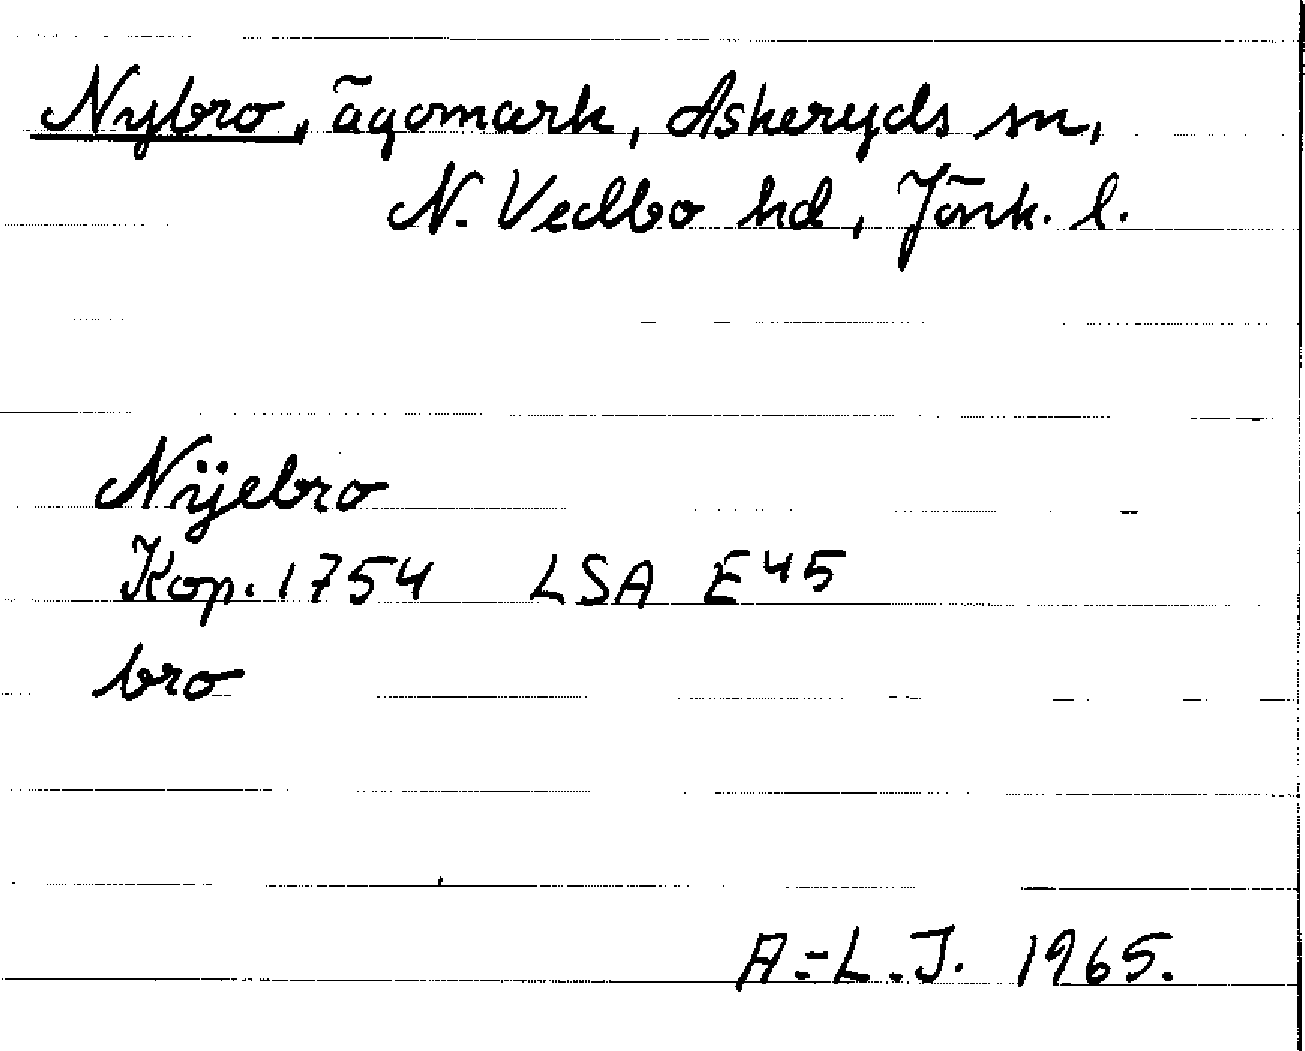 Nybro, ägomark, Askeryds sn,
N. Vedbo hd, Jönk. l.
Nÿebro
Kop. 1754 LSA E45
bro
A.-L. J. 1965.